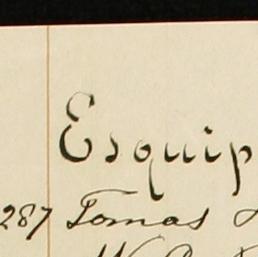 Esquip
287 Tomas